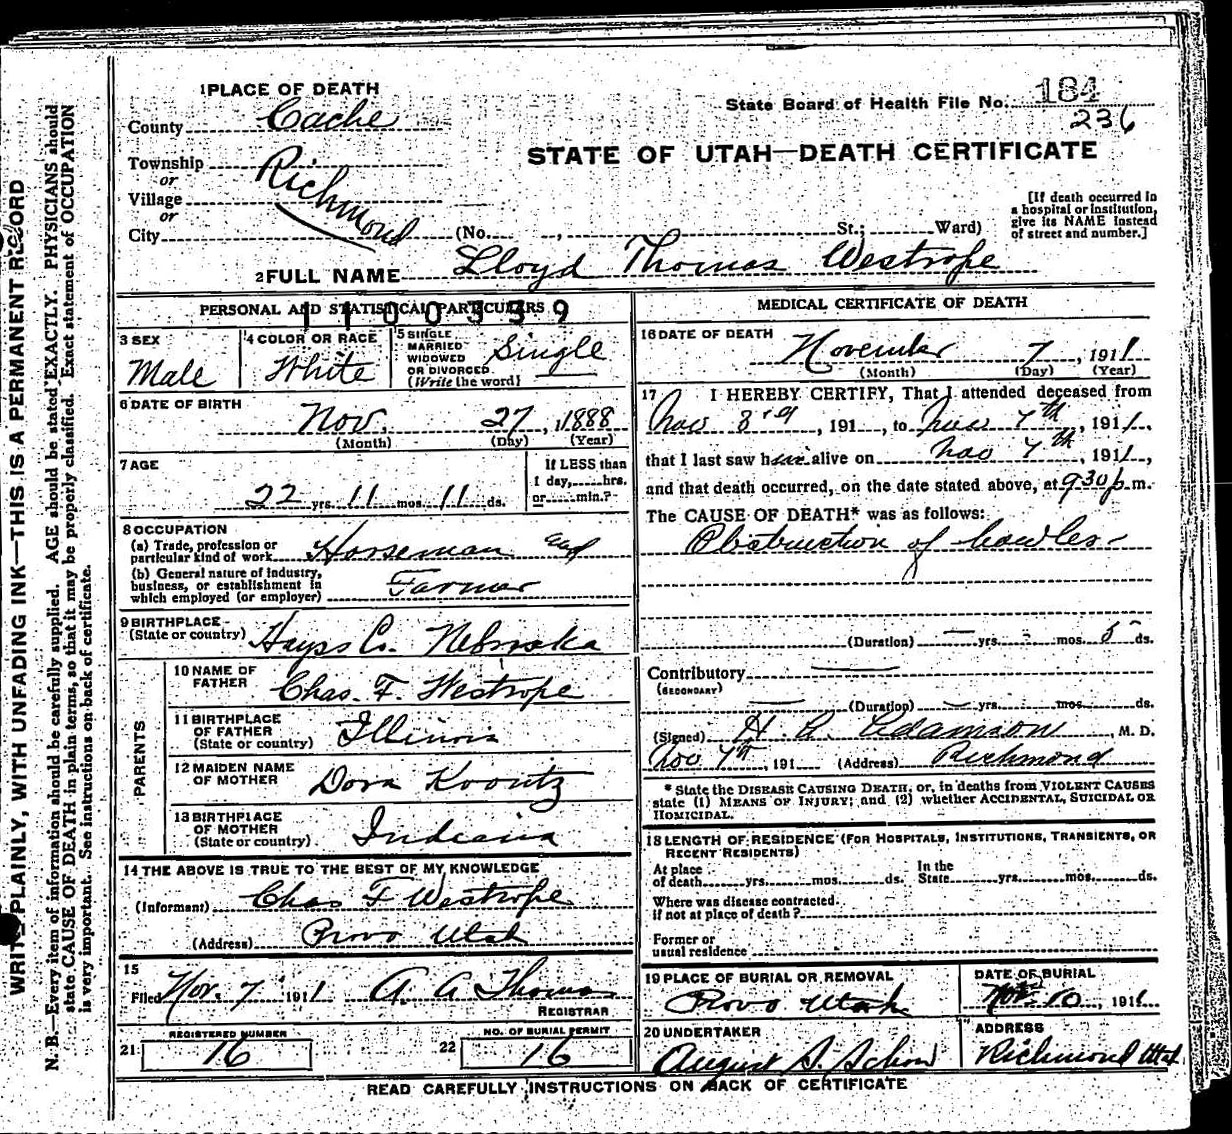 WRITE PLAINLY, WITH UNFADING INK—THIS IS A PERMANENT RECORD
N. B.—Every item of information should be carefully supplied. AGE should be stated EXACTLY. PHYSICIANS should
state CAUSE OF DEATH in plain terms, so that it may be properly classified. Exact statement of OCCUPATION
is very important. See instructions on back of certificate.
1 PLACE OF DEATH
County Cache
Township
or
Village
or
City
Richmond
State Board of Health File No. 184
236
STATE OF UTAH—DEATH CERTIFICATE
(No. , St.; Ward)
[If death occurred in
a hospital or institution,
give its NAME instead
of street and number.]
2 FULL NAME Lloyd Thomas Westrope
PERSONAL AND STATISTICAL PARTICULARS
1100359
3 SEX
Male
4 COLOR OR RACE
White
5 SINGLE
MARRIED
WIDOWED
OR DIVORCED
(Write the word)
Single
6 DATE OF BIRTH
Nov. 27, 1888
(Month) (Day) (Year)
7 AGE
22 yrs. 11 mos. 11 ds.
If LESS than
1 day, hrs.
or min.?
8 OCCUPATION
(a) Trade, profession or
particular kind of work Horseman and
(b) General nature of industry,
business, or establishment in
which employed (or employer) Farmer
9 BIRTHPLACE
(State or country) Hayes Co. Nebraska
PARENTS
10 NAME OF
FATHER Chas. F. Westrope
11 BIRTHPLACE
OF FATHER
(State or country) Illinois
12 MAIDEN NAME
OF MOTHER Dora Koontz
13 BIRTHPLACE
OF MOTHER
(State or country) Indiana
14 THE ABOVE IS TRUE TO THE BEST OF MY KNOWLEDGE
(Informant) Chas F Westrope
(Address) Provo Utah
15
Filed Nov. 7 1911 A. A Thomas
REGISTRAR
REGISTERED NUMBER
21 16
NO. OF BURIAL PERMIT
22 16
MEDICAL CERTIFICATE OF DEATH
16 DATE OF DEATH
November 7, 1911
(Month) (Day) (Year)
17 I HEREBY CERTIFY, That I attended deceased from
Nov 3rd, 191 , to Nov 7th, 1911.
that I last saw him alive on Nov 7th, 1911,
and that death occurred, on the date stated above, at 930 p.m.
The CAUSE OF DEATH* was as follows:
Obstruction of bowles
(Duration) — yrs. - mos. 5 ds.
Contributory
(SECONDARY)
(Duration) yrs. mos. ds.
(Signed) H. Adamson, M. D.
Nov 7th, 191 (Address) Richmond
* State the DISEASE CAUSING DEATH, or, in deaths from VIOLENT CAUSES
state (1) MEANS OF INJURY; and (2) whether ACCIDENTAL, SUICIDAL OR
HOMICIDAL.
18 LENGTH OF RESIDENCE (FOR HOSPITALS, INSTITUTIONS, TRANSIENTS, OR
RECENT RESIDENTS)
At place
of death yrs. mos. ds.
In the
State yrs. mos. ds.
Where was disease contracted.
if not at place of death?
Former or
usual residence
19 PLACE OF BURIAL OR REMOVAL
Provo Utah
DATE OF BURIAL
Nov. 10, 1911
20 UNDERTAKER
August S. Schow
ADDRESS
Richmond Utah
READ CAREFULLY INSTRUCTIONS ON BACK OF CERTIFICATE